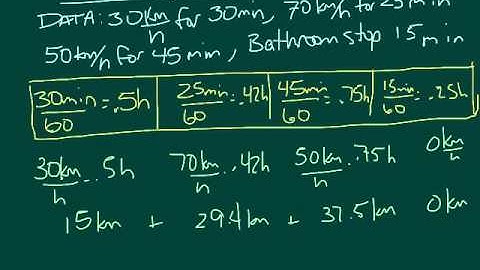 DATA: 30 km/h for 30 min, 70 km/h for 25 min
50 km/h for 45 min, Bathroom stop 15 min
30min/60 = .5h 25min/60 = .42h 45min/60 = .75h 15min/60 = .25h
30 km/h · .5h 70 km/h · .42h 50 km/h · .75h 0 km/h
15 km + 29.4 km + 37.5 km 0 km